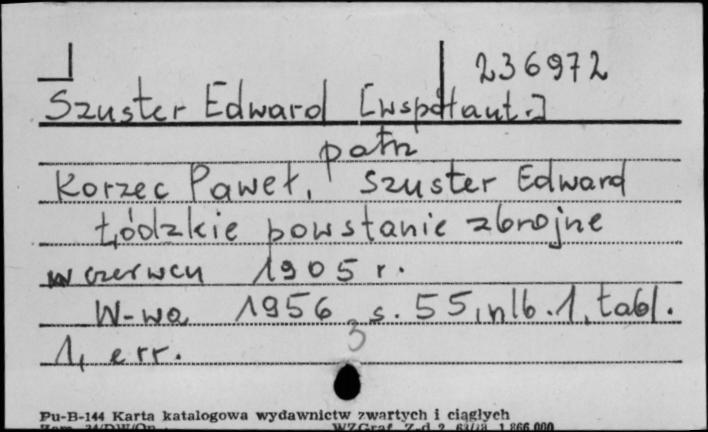 236972
Szuster Edward [współaut.]
patrz
Korzec Paweł, Szuster Edward
Łódzkie powstanie zbrojne
w czerwcu 1905 r.
W-wa 1956 s. 55, nlb. 1, tabl.
1, err.
3
Pu-B-144 Karta katalogowa wydawnictw zwartych i ciągłych
WZGraf. Z-d 2